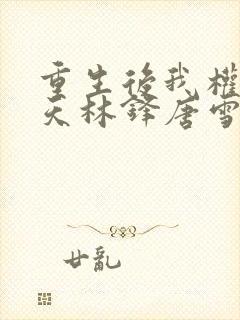 重生後我權
天林鋒唐雪
廿亂